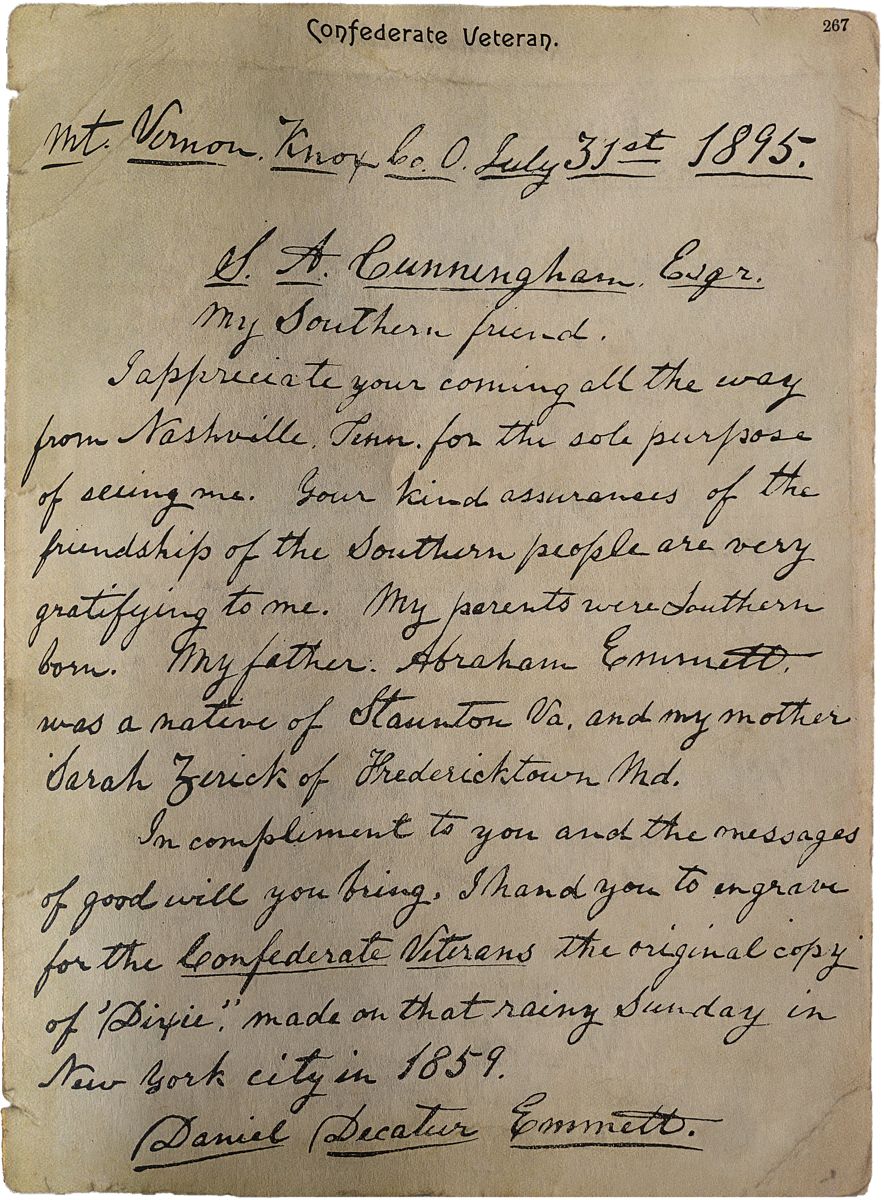 Confederate Veteran.
267
Mt. Vernon. Knox Co. O. July 31st 1895.
S. A. Cunningham. Esqr.
My Southern friend.
I appreciate your coming all the way
from Nashville, Tenn. for the sole purpose
of seeing me. Your kind assurances of the
friendship of the Southern people are very
gratifying to me. My parents were Southern
born. My father: Abraham Emmett.
was a native of Staunton Va. and my mother
Sarah Zerick of Fredericktown Md.
In compliment to you and the messages
of good will you bring. I hand you to engrave
for the Confederate Veterans the original copy
of "Dixie", made on that rainy Sunday in
New York city in 1859.
Daniel Decatur Emmett.